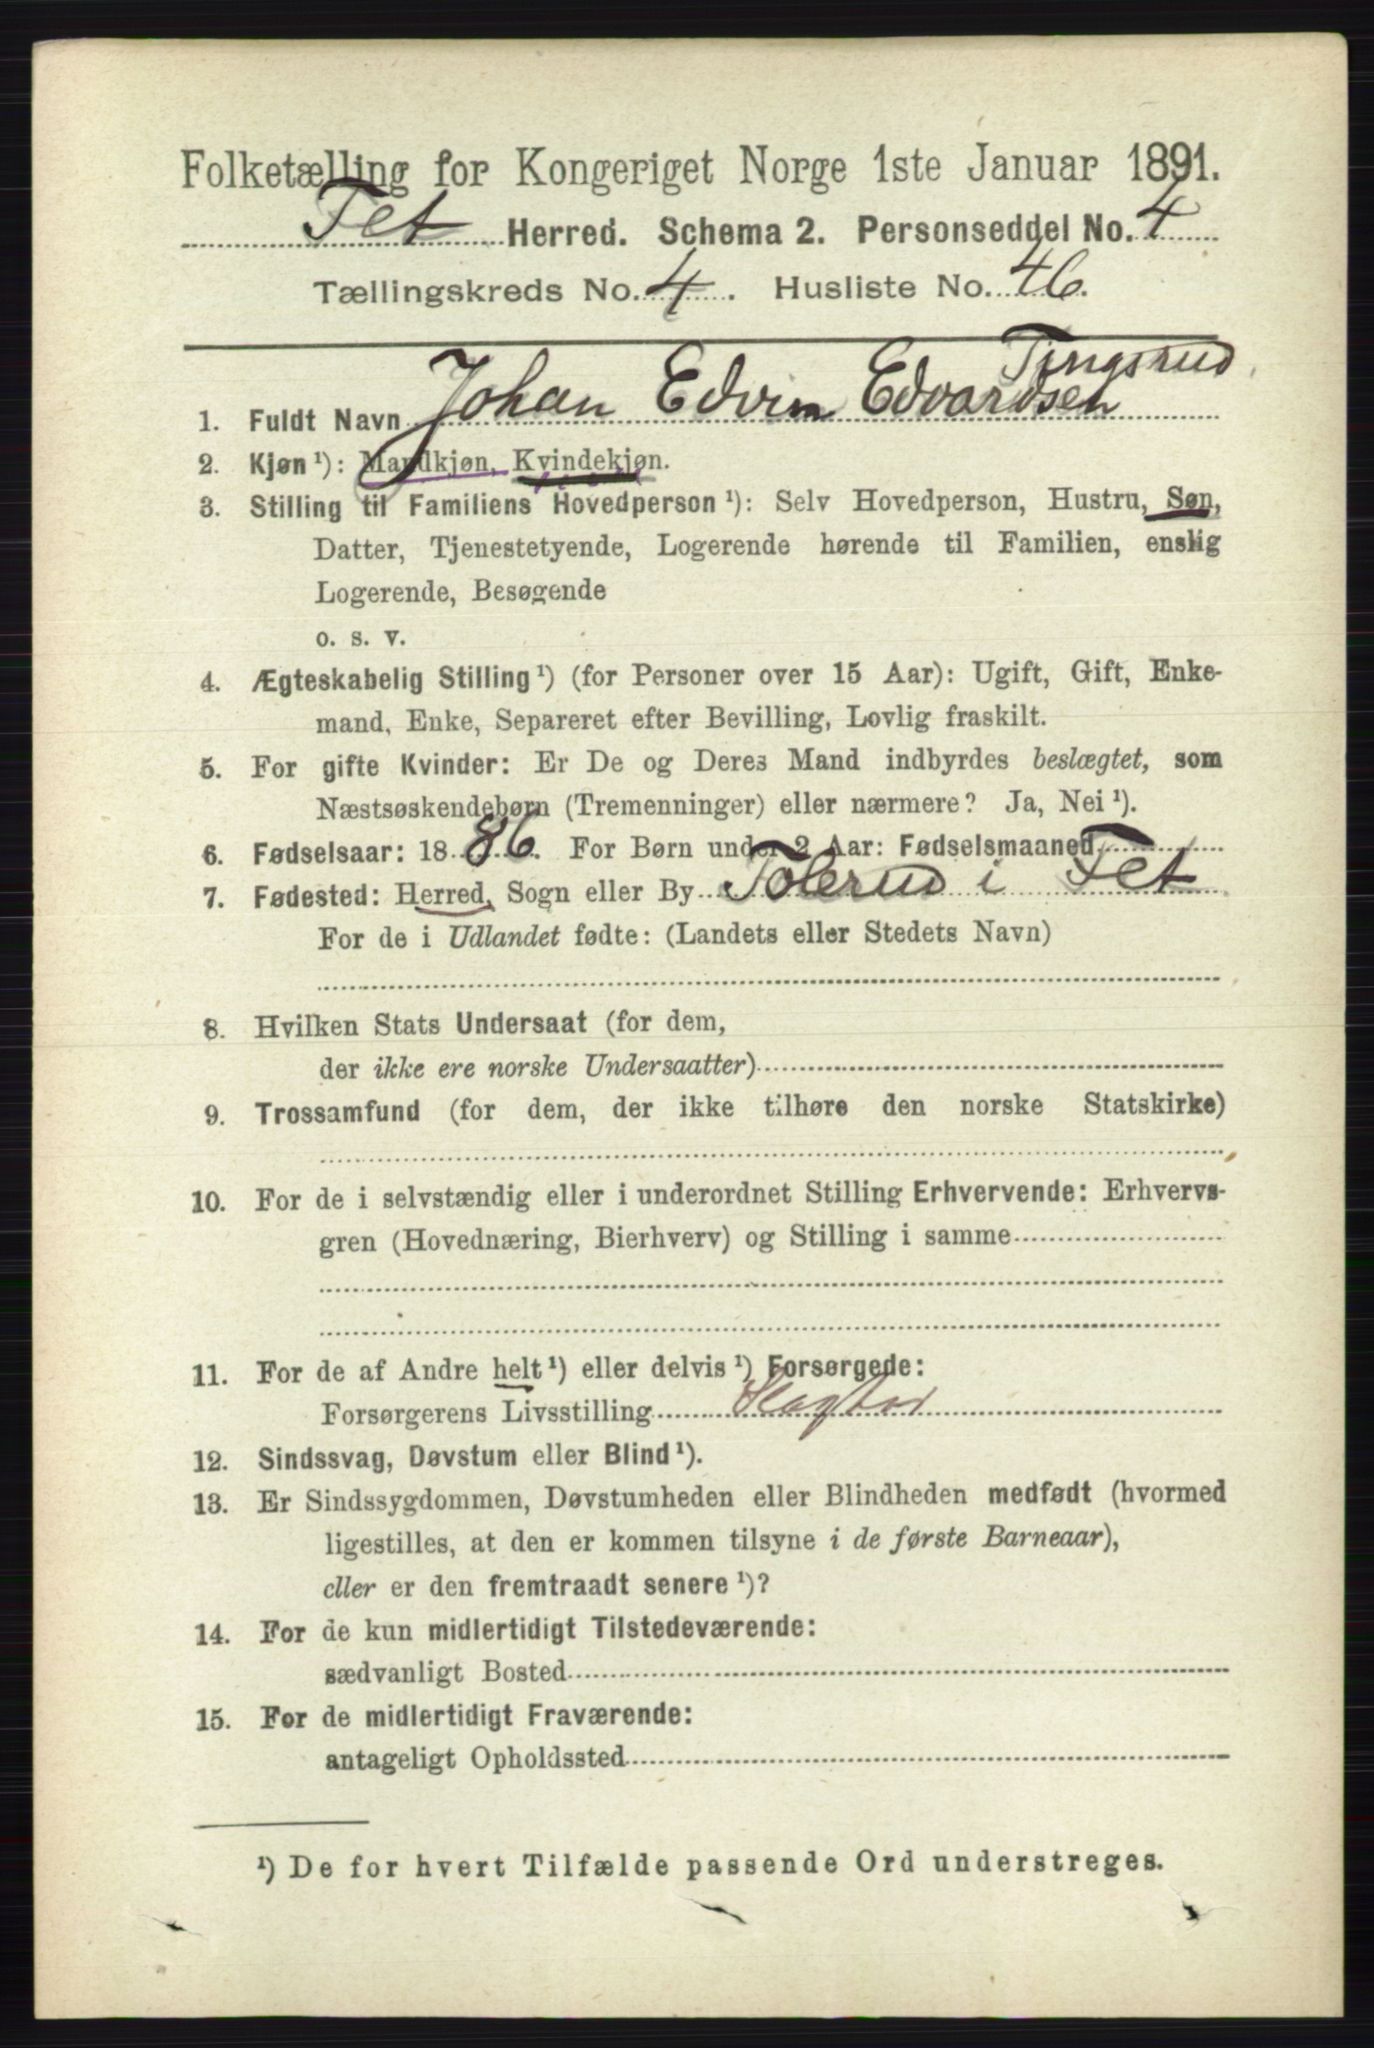 Folketælling for Kongeriget Norge 1ste Januar 1891.
Fet Herred. Schema 2. Personseddel No. 4
Tællingskreds No. 4. Husliste No. 46.
Tingsrud
1. Fuldt Navn Johan Edvin Edvardsen
2. Kjøn ¹): Mandkjøn, Kvindekjøn.
3. Stilling til Familiens Hovedperson ¹): Selv Hovedperson, Hustru, Søn,
Datter, Tjenestetyende, Logerende hørende til Familien, enslig
Logerende, Besøgende
o. s. v.
4. Ægteskabelig Stilling ¹) (for Personer over 15 Aar): Ugift, Gift, Enke-
mand, Enke, Separeret efter Bevilling, Lovlig fraskilt.
5. For gifte Kvinder: Er De og Deres Mand indbyrdes beslægtet, som
Næstsøskendebørn (Tremenninger) eller nærmere? Ja, Nei ¹).
6. Fødselsaar: 1886. For Børn under 2 Aar: Fødselsmaaned
7. Fødested: Herred, Sogn eller By Tolerud i Fet
For de i Udlandet fødte: (Landets eller Stedets Navn)
8. Hvilken Stats Undersaat (for dem,
der ikke ere norske Undersaatter)
9. Trossamfund (for dem, der ikke tilhøre den norske Statskirke)
10. For de i selvstændig eller i underordnet Stilling Erhvervende: Erhvervs-
gren (Hovednæring, Bierhverv) og Stilling i samme
11. For de af Andre helt ¹) eller delvis ¹) Forsørgede:
Forsørgerens Livsstilling Slagter
12. Sindssvag, Døvstum eller Blind ¹).
13. Er Sindssygdommen, Døvstumheden eller Blindheden medfødt (hvormed
ligestilles, at den er kommen tilsyne i de første Barneaar),
eller er den fremtraadt senere ¹)?
14. For de kun midlertidigt Tilstedeværende:
sædvanligt Bosted
15. For de midlertidigt Fraværende:
antageligt Opholdssted
¹) De for hvert Tilfælde passende Ord understreges.